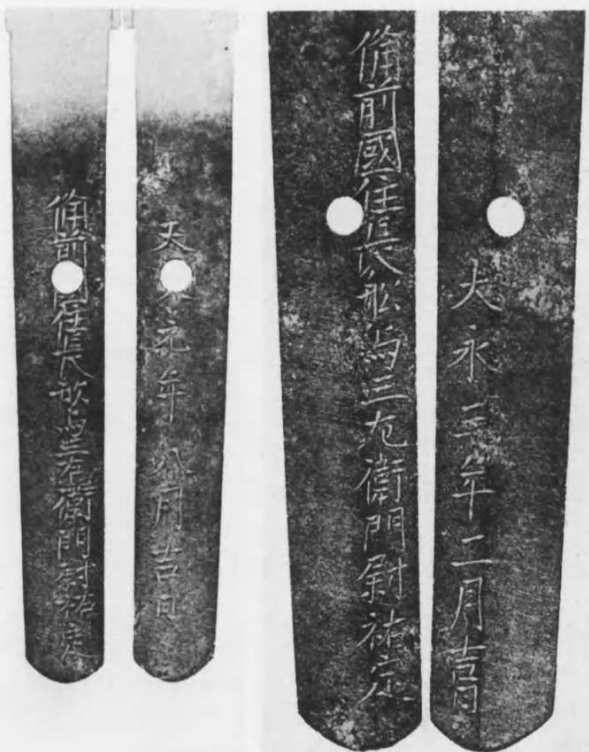 備前國住長舩与三左衛門尉祐定
大永元年八月吉日
備前國住長舩与三左衛門尉祐定
大永三年二月吉日